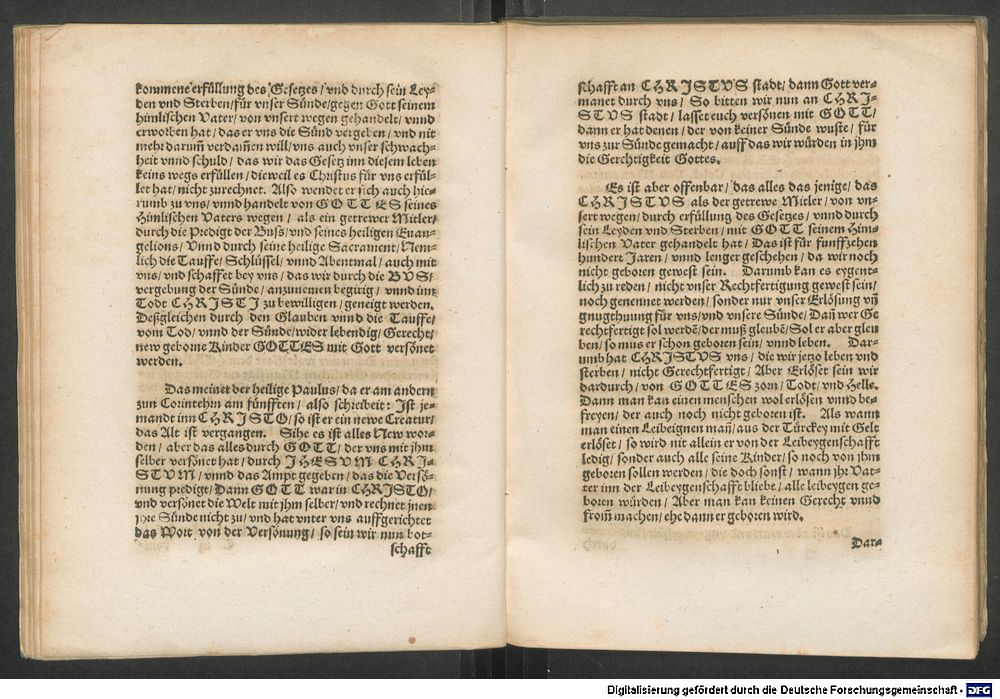 kommene erfüllung des Gesetzes / vnd durch sein Ley-
den vnd Sterben / für vnser Sünde / gegen Gott seinem
himlischen Vater / von vnsert wegen gehandelt / vnnd
erworben hat / das er vns die Sünd vergeben / vnd nit
mehr darumm verdammen will / vns auch vnser schwach-
heit vnnd schuld / das wir das Gesetz inn diesem leben
keins wegs erfüllen / dieweil es Christus für vns erfül-
let hat / nicht zurechnet. Also wendet er sich auch hie-
rumb zu vns / vnnd handelt von GOTTES seines
Himlischen Vaters wegen / als ein getrewer Mitler /
durch die Predigt der Buss / vnd seines heiligen Euan-
gelions / Vnnd durch seine heilige Sacrament / Nem-
lich die Tauffe / Schlüssel / vnnd Abentmal / auch mit
vns / vnd schaffet bey vns / das wir durch die BVS /
vergebung der Sünde / anzunemen begirig / vnnd inn
Todt CHRISTI zu bewilligen / geneigt werden.
Deßgleichen durch den Glauben vnnd die Tauffe /
vom Tod / vnnd der Sünde / wider lebendig / Gerecht /
new geborne Kinder GOTTES mit Gott versönet
werden.
Das meinet der heilige Paulus / da er am andern
zun Corinthern am fünfften / also schreibeit: Ist je-
mandt inn CHRISTO / so ist er ein newe Creatur /
das Alt ist vergangen. Sihe es ist alles New wor-
den / aber das alles durch GOTT / der vns mit jhm
selber versönet hat / durch JHESVM CHRI-
STVM / vnnd das Ampt gegeben / das die Versö-
nung predigt / Dann GOTT war in CHRISTO /
vnd versönet die Welt mit jhm selber / vnd rechnet jnen
jhre Sünde nicht zu / vnd hat vnter vns auffgerichtet
das Wort von der Versönung / so sein wir nun bot-
schafft
schafft an CHRISTVS stadt / dann Gott ver-
manet durch vns / So bitten wir nun an CHRI-
STVS stadt / lasset euch versönen mit GOTT /
dann er hat denen / der von keiner Sünde wuste / für
vns zur Sünde gemacht / auff das wir würden in jhm
die Gerchtigkeit Gottes.
Es ist aber offenbar / das alles das jenige / das
CHRISTVS als der getrewe Mitler / von vn-
sert wegen / durch erfüllung des Gesetzes / vnnd durch
sein Leyden vnd Sterben / mit GOTT seinem Him-
lischen Vater gehandelt hat / Das ist für funffzehen
hundert Jaren / vnnd lenger geschehen / da wir noch
nicht geboren gewest sein. Darumb kan es eygent-
lich zu reden / nicht vnser Rechtfertigung gewest sein /
noch genennet werden / sonder nur vnser Erlösung vñ
gnugthuung für vns / vnd vnsere Sünde / Dañ wer Ge
rechtfertigt sol werdẽ / der muß gleubẽ / Sol er aber gleu
ben / so mus er schon geboren sein / vnnd leben. Dar-
umb hat CHRISTVS vns / die wir jetzo leben vnd
sterben / nicht Gerechtfertigt / Aber Erlöset sein wir
dardurch / von GOTTES zorn / Todt / vnd Helle.
Dann man kan einen menschen wol erlösen vnnd be-
freyen / der auch noch nicht geboren ist. Als wann
man einen Leibeignen mañ / aus der Türckey mit Gelt
erlöset / so wird nit allein er von der Leibeygenschafft
ledig / sonder auch alle seine Kinder / so noch von jhm
geboren sollen werden / die doch sonst / wann jhr Vat-
ter inn der Leibeygenschafft bliebe / alle leibeygen ge-
boren würden / Aber man kan keinen Gerecht vnnd
from̃ machen / ehe dann er geboren wird.
Dar-
Digitalisierung gefördert durch die Deutsche Forschungsgemeinschaft - DFG